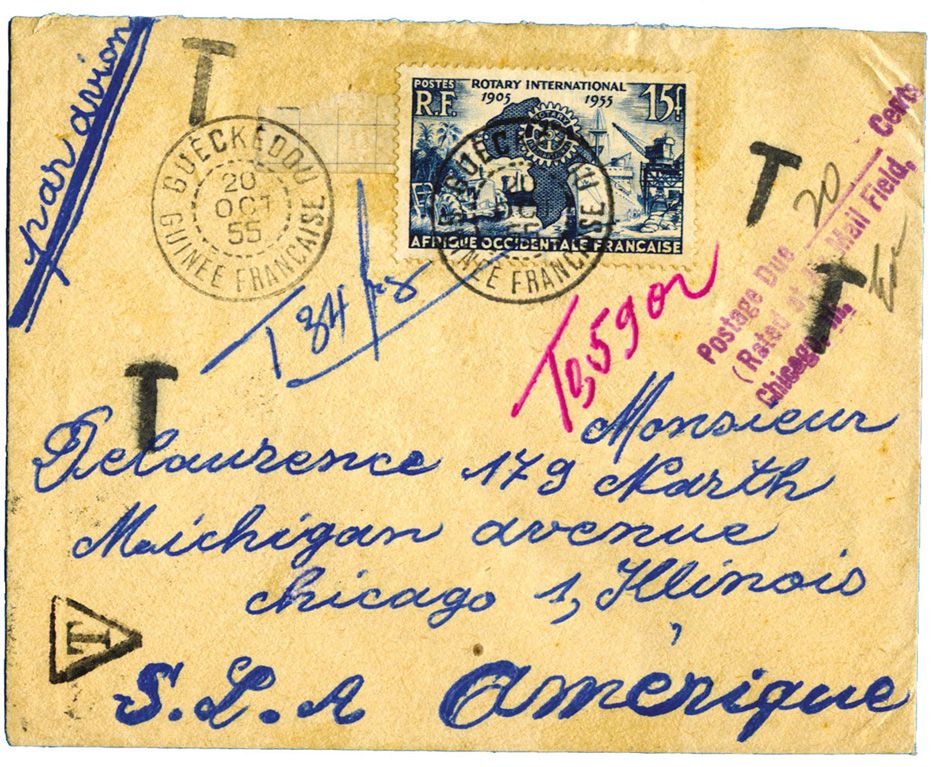 par avion
T
GUÉCKÉDOU
20
OCT
55
GUINÉE FRANÇAISE
POSTES
R.F.
ROTARY INTERNATIONAL
1905 1955
15f
AFRIQUE OCCIDENTALE FRANÇAISE
GUÉCKÉDOU
20
GUINÉE FRANÇAISE
T
20 Cents
Postage Due
(Rated at Mail Field,
Chicago, Ill.
T
T 34
T 0,59 or
T
Monsieur
Delaurence 179 North
Michigan avenue
chicago 1, Illinois
T
S.L.A Amérique